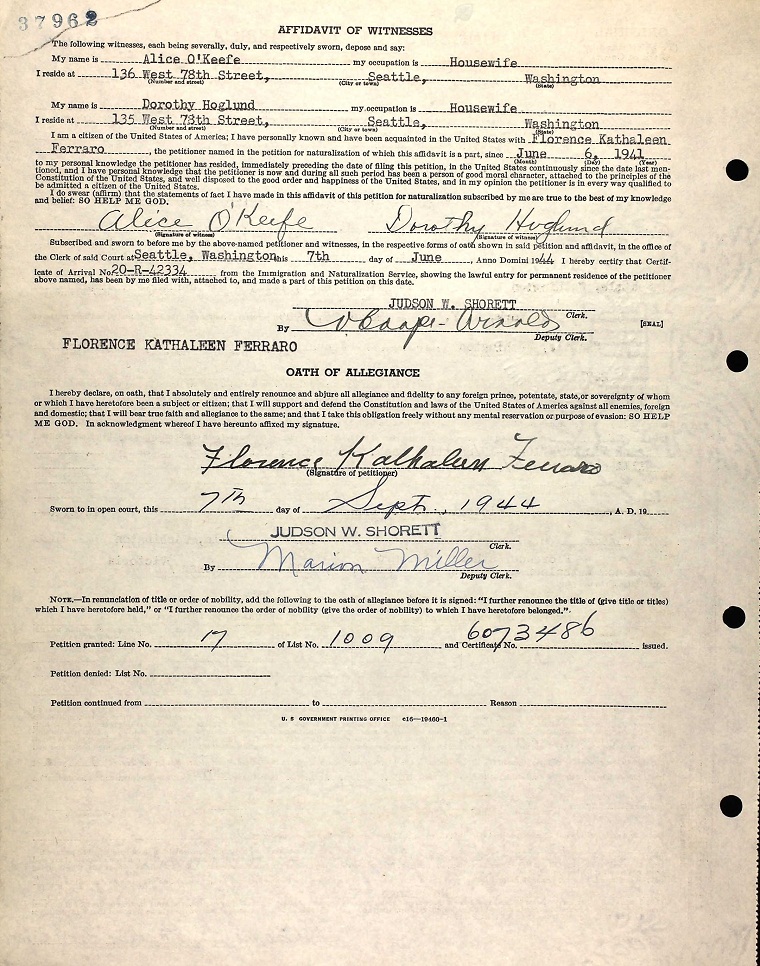 37962
AFFIDAVIT OF WITNESSES
The following witnesses, each being severally, duly, and respectively sworn, depose and say:
My name is Alice O'Keefe my occupation is Housewife
I reside at 136 West 78th Street, Seattle, Washington
(Number and street) (City or town) (State)
My name is Dorothy Hoglund my occupation is Housewife
I reside at 135 West 78th Street, Seattle, Washington
(Number and street) (City or town) (State)
I am a citizen of the United States of America; I have personally known and have been acquainted in the United States with Florence Kathaleen
Ferraro, the petitioner named in the petition for naturalization of which this affidavit is a part, since June 6, 1941
(Month) (Day) (Year)
to my personal knowledge the petitioner has resided, immediately preceding the date of filing this petition, in the United States continuously since the date last men-
tioned, and I have personal knowledge that the petitioner is now and during all such period has been a person of good moral character, attached to the principles of the
Constitution of the United States, and well disposed to the good order and happiness of the United States, and in my opinion the petitioner is in every way qualified to
be admitted a citizen of the United States.
I do swear (affirm) that the statements of fact I have made in this affidavit of this petition for naturalization subscribed by me are true to the best of my knowledge
and belief: SO HELP ME GOD.
Alice O'Keefe Dorothy Hoglund
(Signature of witness) (Signature of witness)
Subscribed and sworn to before me by the above-named petitioner and witnesses, in the respective forms of oath shown in said petition and affidavit, in the office of
the Clerk of said Court at Seattle, Washington this 7th day of June, Anno Domini 1944 I hereby certify that Certif-
icate of Arrival No. 20-R-42334 from the Immigration and Naturalization Service, showing the lawful entry for permanent residence of the petitioner
above named, has been by me filed with, attached to, and made a part of this petition on this date.
JUDSON W. SHORETT
Clerk.
By Arnold [SEAL]
Deputy Clerk.
FLORENCE KATHALEEN FERRARO
OATH OF ALLEGIANCE
I hereby declare, on oath, that I absolutely and entirely renounce and abjure all allegiance and fidelity to any foreign prince, potentate, state, or sovereignty of whom
or which I have heretofore been a subject or citizen; that I will support and defend the Constitution and laws of the United States of America against all enemies, foreign
and domestic; that I will bear true faith and allegiance to the same; and that I take this obligation freely without any mental reservation or purpose of evasion: SO HELP
ME GOD. In acknowledgment whereof I have hereunto affixed my signature.
Florence Kathaleen Ferraro
(Signature of petitioner)
Sworn to in open court, this 7th day of Sept, 1944, A. D. 19
JUDSON W. SHORETT
Clerk.
By Marion Miller
Deputy Clerk.
NOTE.—In renunciation of title or order of nobility, add the following to the oath of allegiance before it is signed: "I further renounce the title of (give title or titles)
which I have heretofore held," or "I further renounce the order of nobility (give the order of nobility) to which I have heretofore belonged."
Petition granted: Line No. 17 of List No. 1009 and Certificate No. 6073486 issued.
Petition denied: List No.
Petition continued from to Reason
U. S GOVERNMENT PRINTING OFFICE c16—19460-1